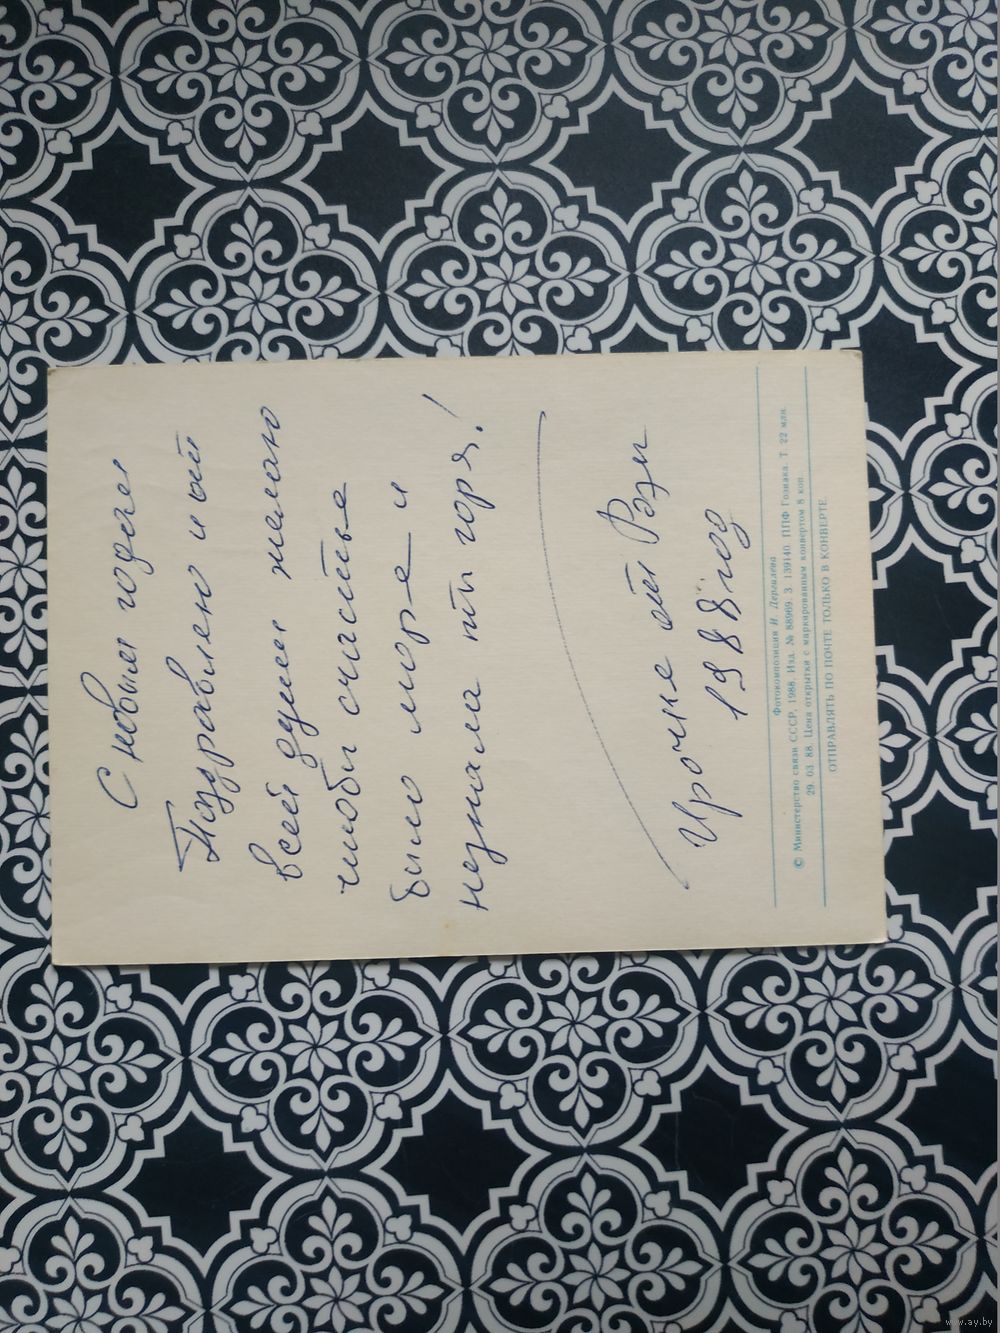 С новым годом
Поздравляю и от
всей души желаю
чтобы счастье
было море и
незнала ты горя!
Ирочке от Рэм
1988 год
Фотокомпозиция И. Дергилева
© Министерство связи СССР, 1988. Изд. № 88969. З 139140 ППФ Гознака. Т. 22 млн.
29. 03. 88. Цена открытки с маркированным конвертом 8 коп
ОТПРАВЛЯТЬ ПО ПОЧТЕ ТОЛЬКО В КОНВЕРТЕ
www.ay.by